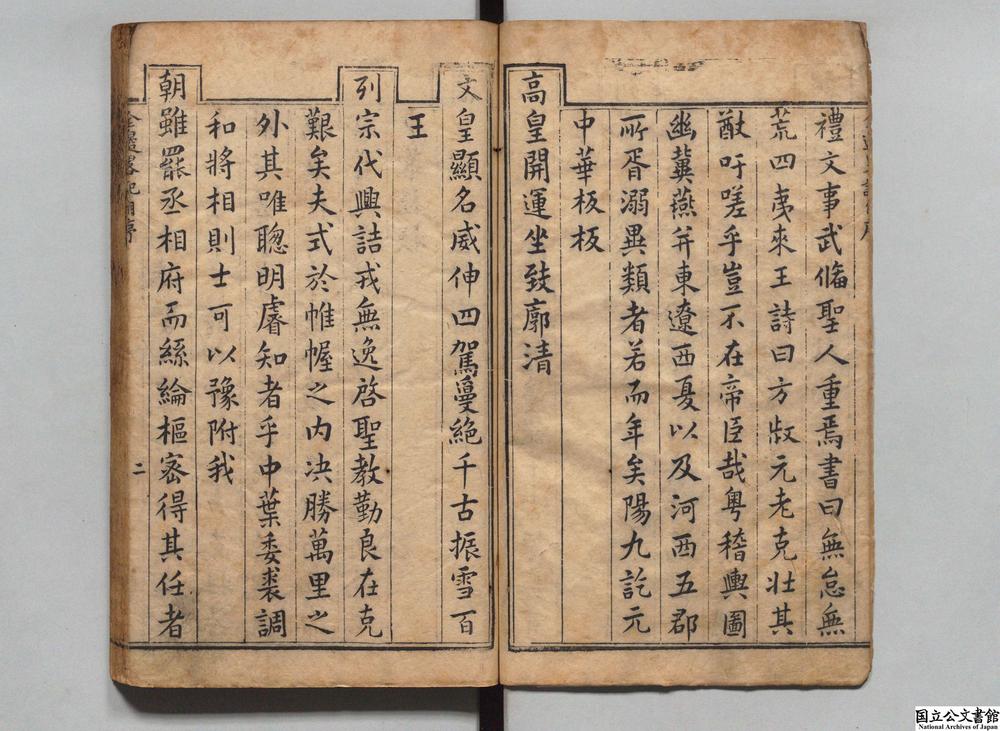 禮文事武俻聖人重焉書曰無怠無
荒四夷來王詩曰方叔元老克壯其
猷吁嗟乎豈不在帝臣哉粤稽輿圖
幽冀燕并東遼西夏以及河西五郡
所胥溺異類者若而年矣陽九訖元
中華板板
高皇開運坐致廓清
文皇顯名威伸四駕敻絶千古振雪百
王
列宗代興詰戎無逸啓聖教勤良在克
艱矣夫式於帷幄之内决勝萬里之
外其唯聰明睿知者乎中葉委裘調
和將相則士可以豫附我
朝雖罷丞相府而絲綸樞宻得其任者
二
國立公文書館
National Archives of Japan